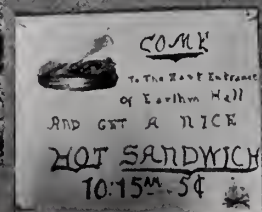 COME
To The East Entrance
Of Earlham Hall
AND GET A NICE
HOT SANDWICH
10:15 AM. 5¢